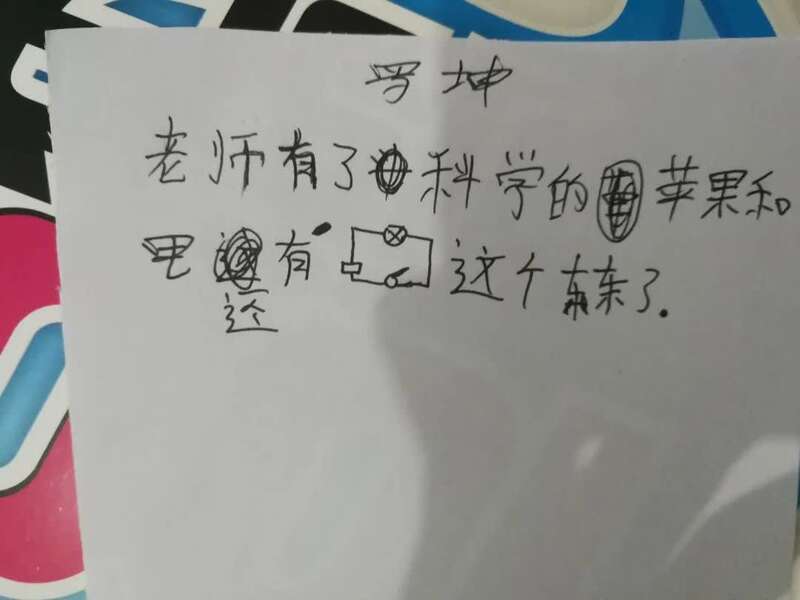 罗坤
老师有了科学的苹果和
电有这个东东了.
还